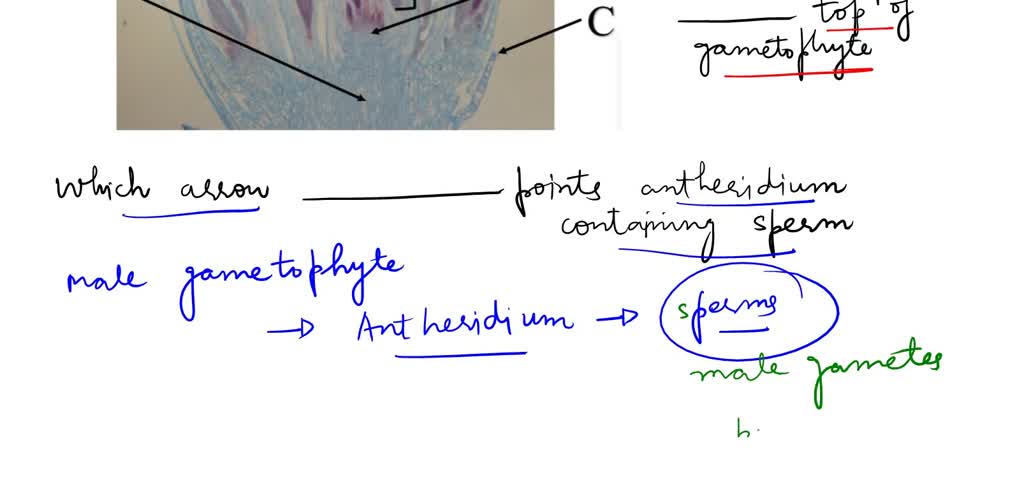 C
top of
gametophyte
which arrow ———— points antheridium
containing sperm
male gametophyte
→ Antheridium → sperms
male gametes
h.